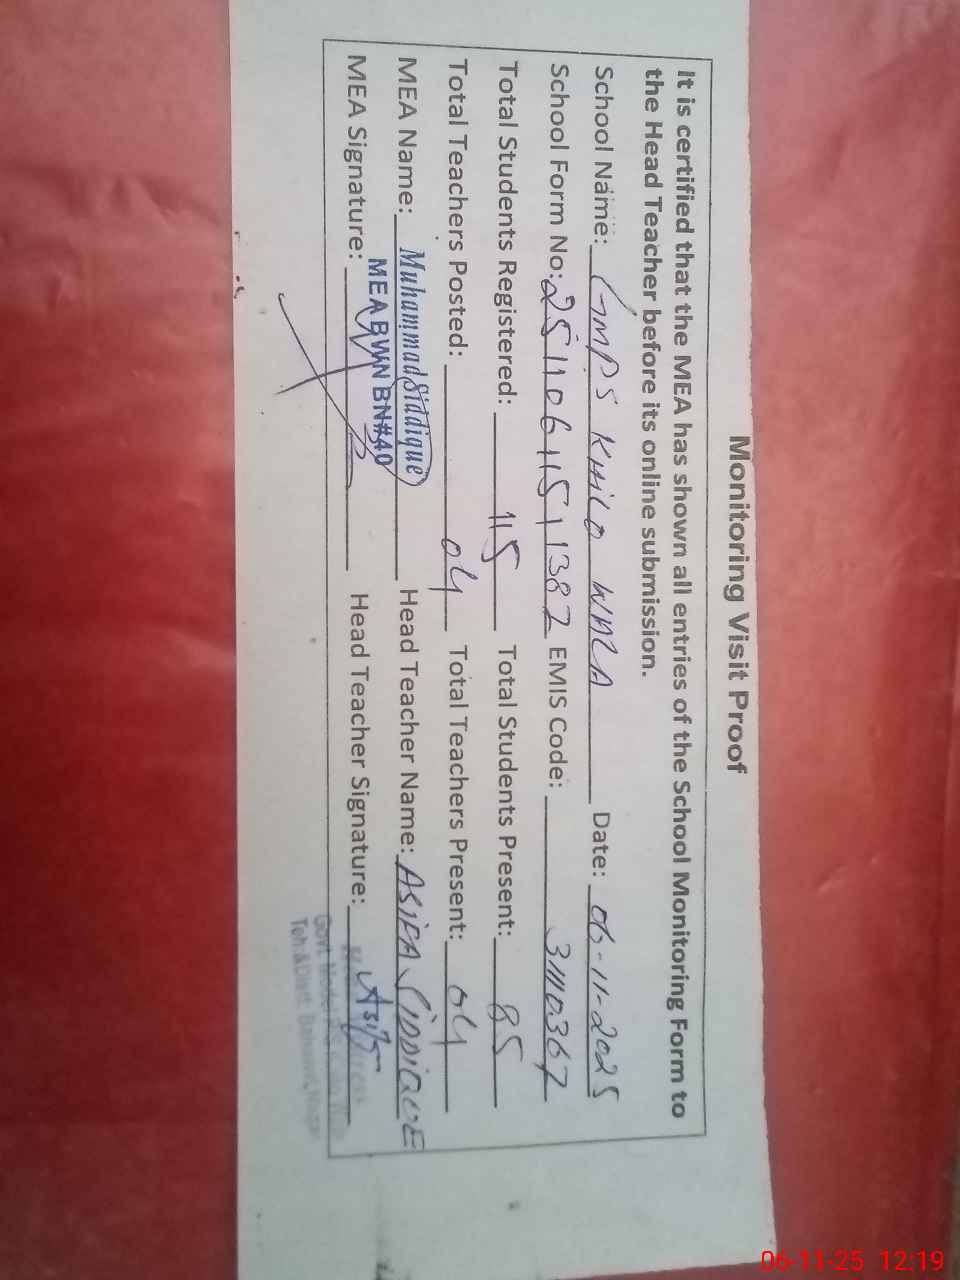 Monitoring Visit Proof
It is certified that the MEA has shown all entries of the School Monitoring Form to
the Head Teacher before its online submission.
School Name: GMPS KHILO WALA Date: 06-11-2025
School Form No: 2511061151382 EMIS Code: 31110367
Total Students Registered: 115 Total Students Present: 85
Total Teachers Posted: 04 Total Teachers Present: 04
MEA Name: Muhammad Siddique Head Teacher Name: ASIFA SIDDIQUE
MEA Signature: MEA BWN BN#40 Head Teacher Signature: Asifa
Govt. Model P/S
Teh:&Distt: Bahawalnagar
06-11-25 12:19